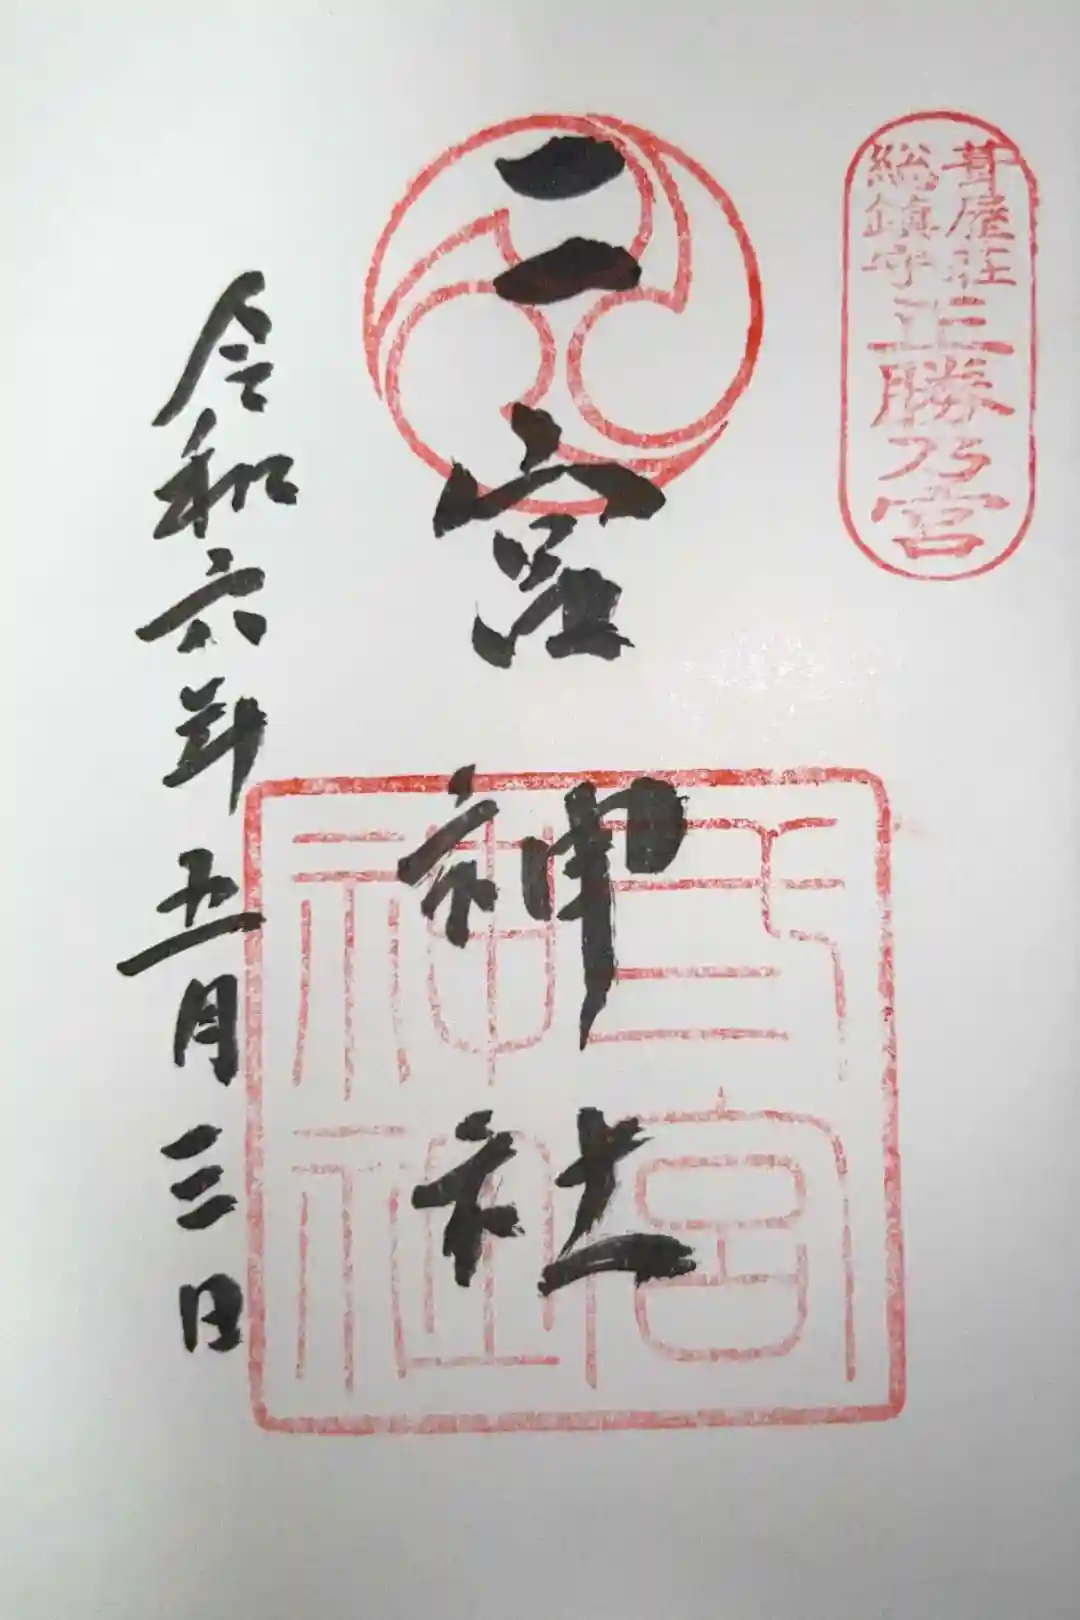 葺屋荘
総鎮守
正勝乃宮
二宮神社
弍宮神社
令和六年五月三日